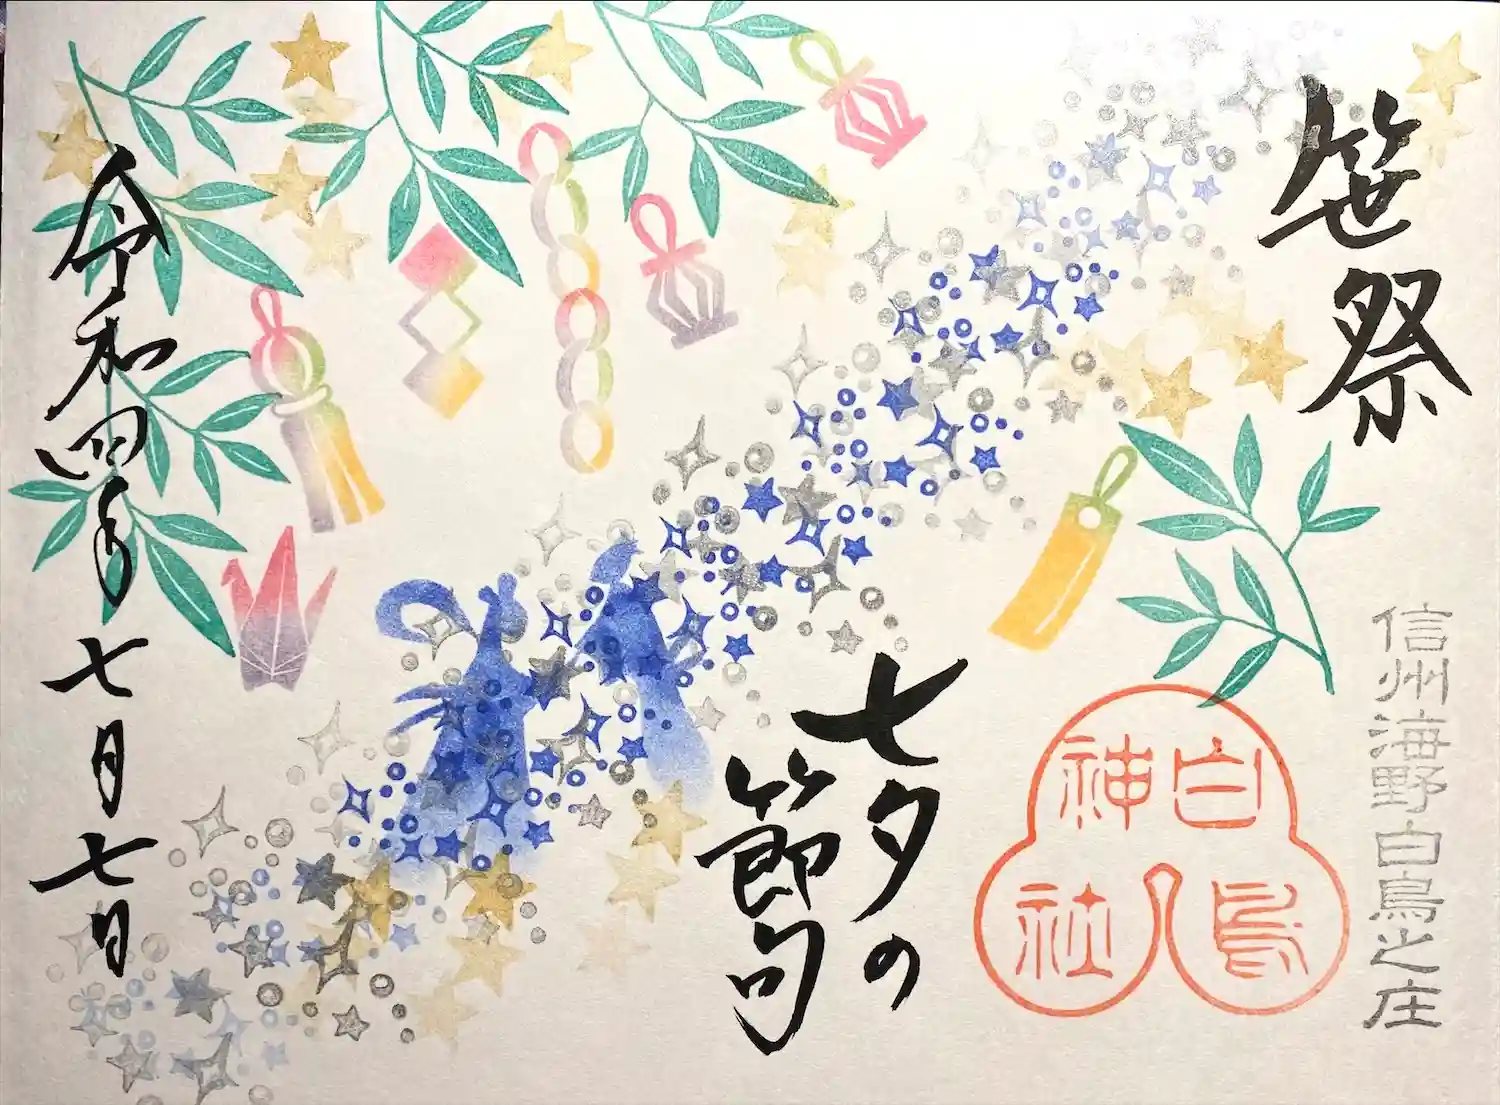 笹祭
信州海野白鳥之庄
白鳥
神社
七夕の
節句
令和四年
七月七日